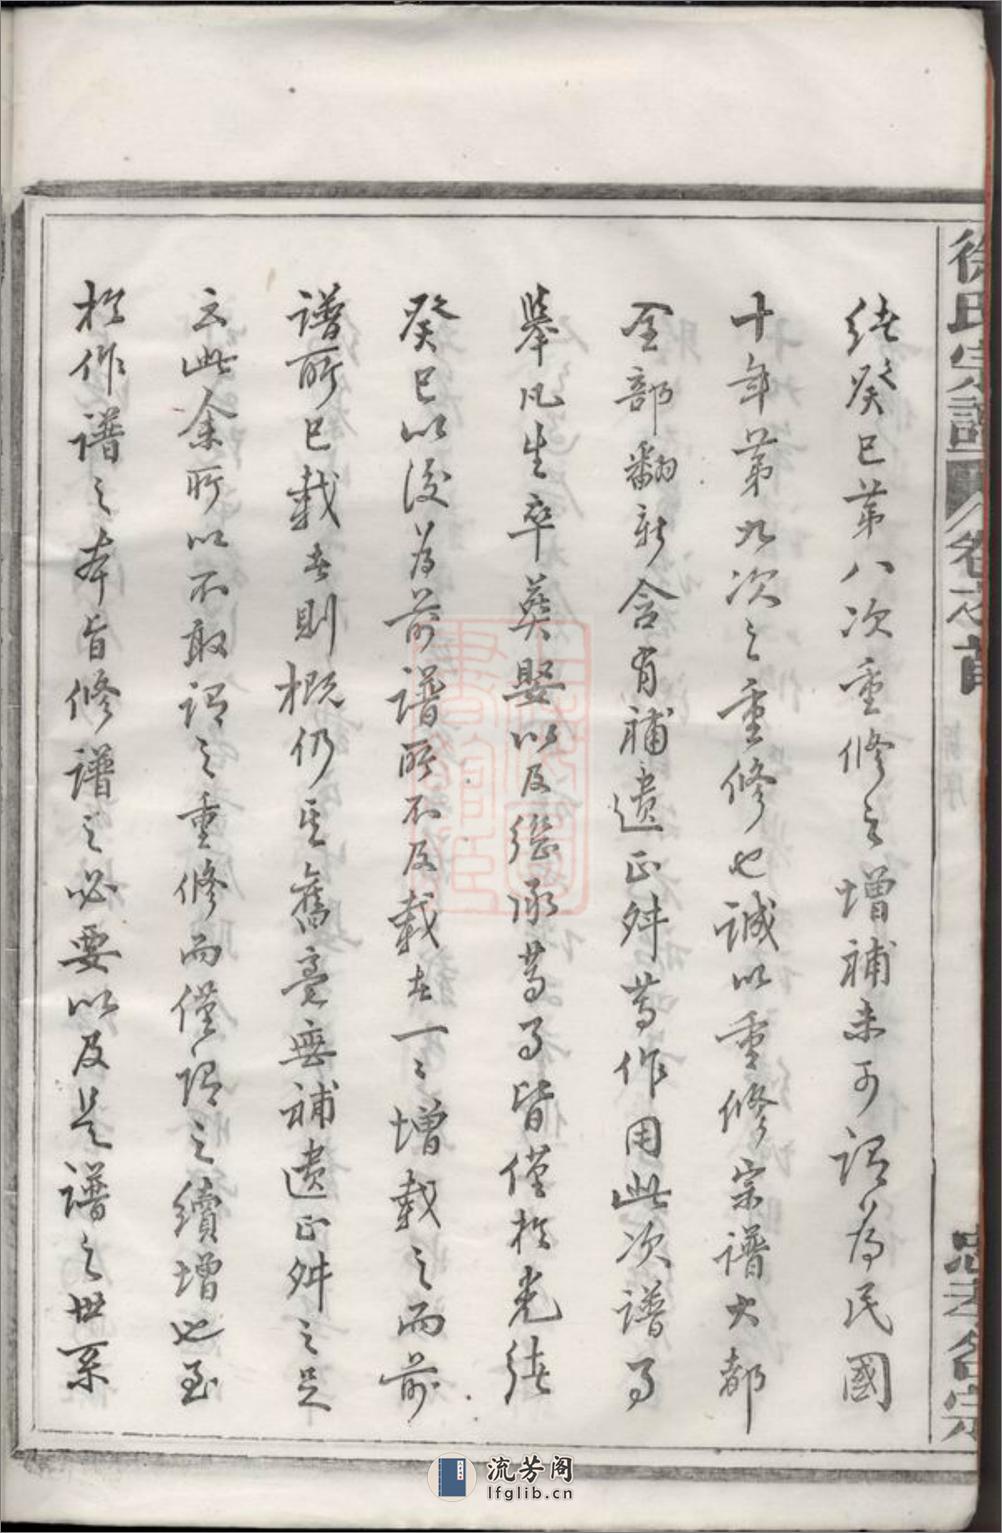 徐氏宗譜 卷之首
新序
忠孝名宗
緒癸巳第八次重修之增補未可謂為民國
十年第九次之重修也誠以重修宗譜大都
全部翻新含有補遺正舛等作用此次譜事
舉凡生卒葬娶以及繼承等事皆僅於光緒
癸巳以後為前譜所不及載者一一增載之而前
譜所已載者則概仍其舊毫無補遺正舛之足
云此余所以不敢謂之重修而僅謂之續增也至
於作譜之本旨修譜之必要以及是譜之世系
流芳阁
lfglib.cn